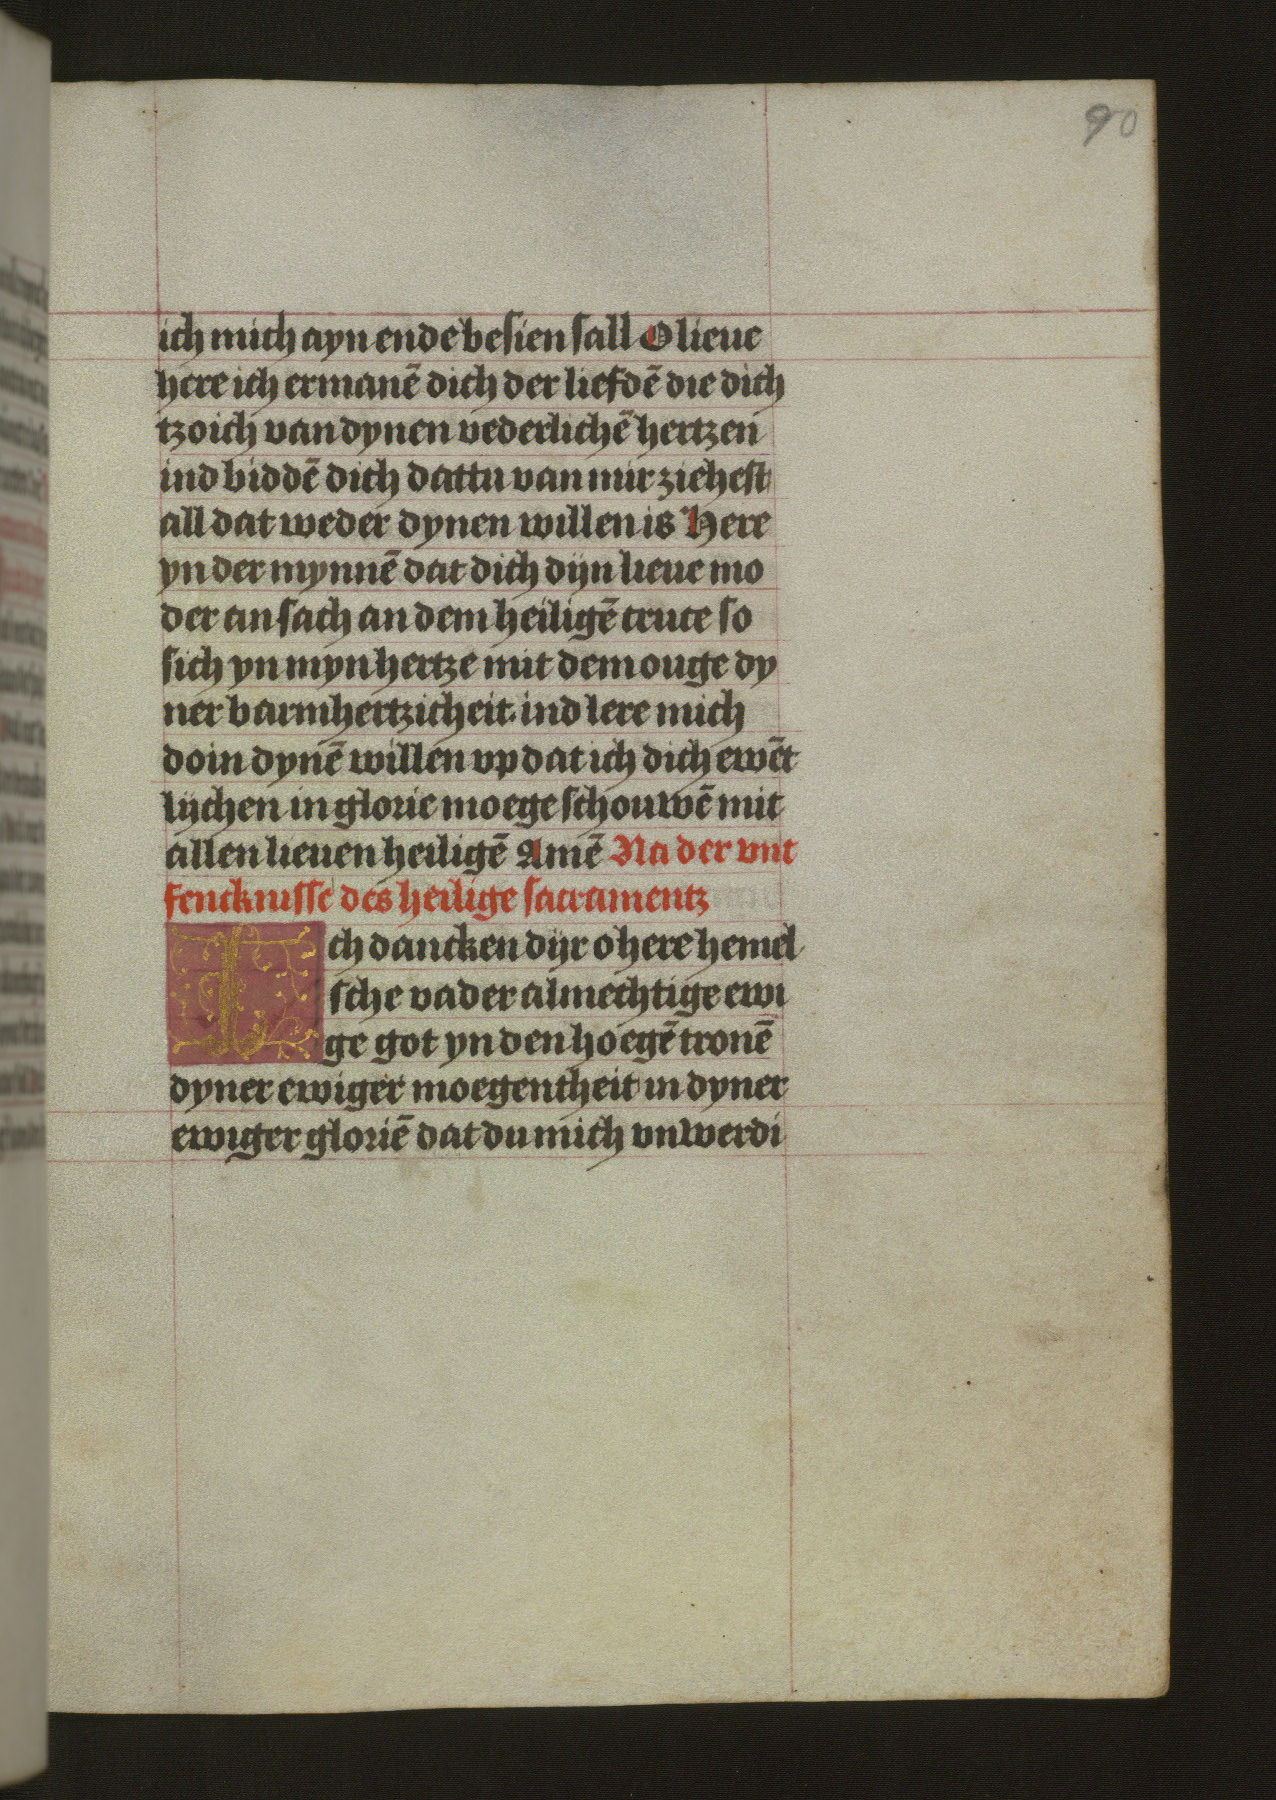 90
ich mich ayn ende besien sall O lieue
here ich ermanē dich der liefdē die dich
tzoich van dynen vederlichē hertzen
ind biddē dich dattu van mir ziehest
all dat weder dynen willen is Here
yn der mynnē dat dich dijn lieue mo
der an sach an dem heiligē cruce so
sich yn myn hertze mit dem ouge dy
ner barmhertzicheit. ind lere mich
doin dynē willen vp dat ich dich ewēt
lijchen in glorie moege schouwē mit
allen lieuen heiligē Amē Na der vnt
fencknisse des heilige sacramentz
Ich dancken dijr o here hemel
sche vader almechtige ewi
ge got yn den hoegē tronē
dyner ewiger moegentheit in dyner
ewiger gloriē dat du mich vnwerdi